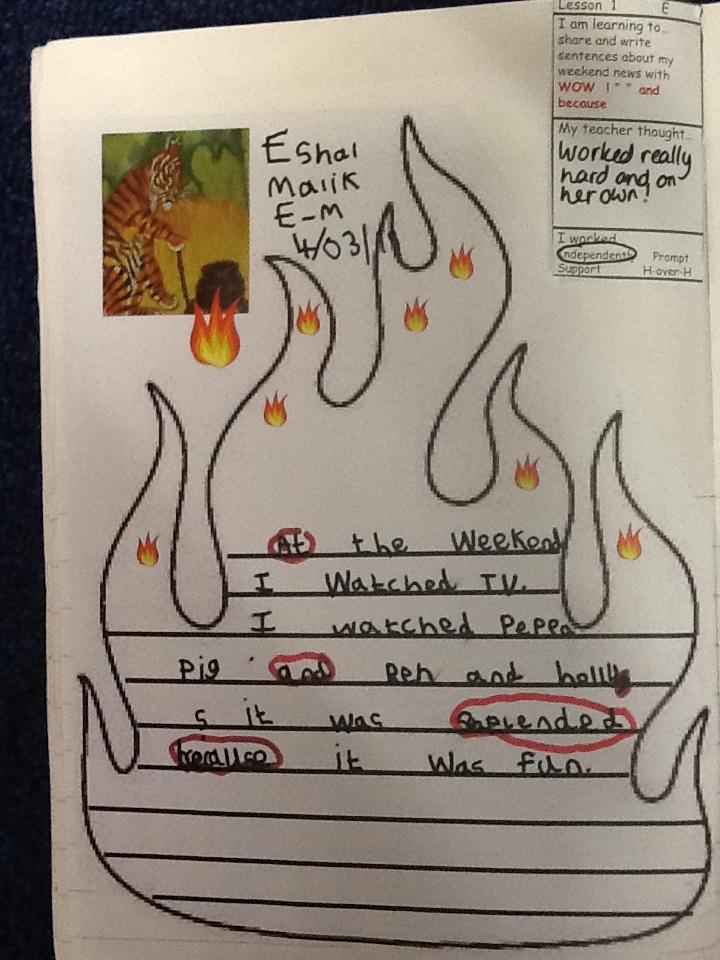 Lesson 1 E
I am learning to...
share and write
sentences about my
weekend news with
WOW ! " " and
because
My teacher thought...
Worked really
hard and on
her own!
I worked
independently Prompt
Support H-over-H
Eshal
Malik
E-M
4/03/
At the Weekend
I Watched TV.
I watched Peppa
Pig and Ben and holly
s it was Saplended
because it Was fun.